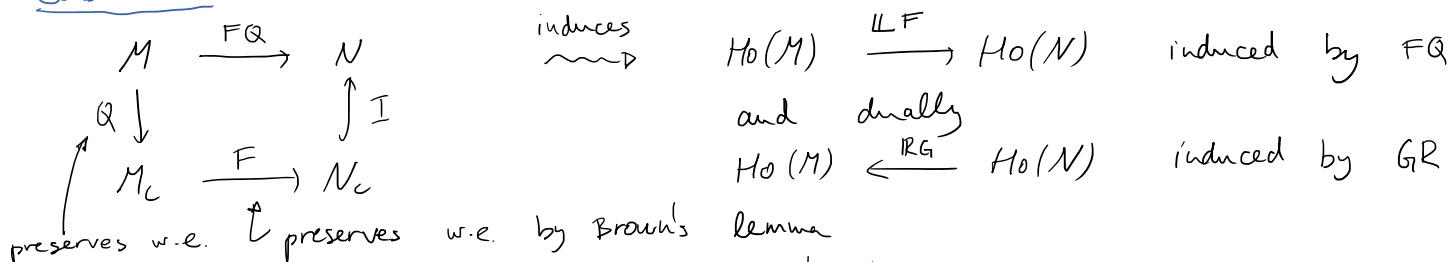 M FQ→ N induces ⇝ Ho(M) 𝕃F→ Ho(N) induced by FQ
Q ↓ ↑ I and dually
M_c F→ N_c Ho(M) ←ℝG Ho(N) induced by GR
preserves w.e. preserves w.e. by Brown's lemma